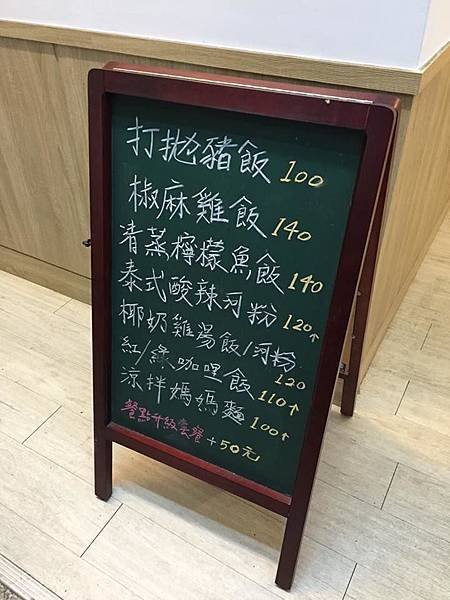 打拋豬飯 100
椒麻雞飯 140
清蒸檸檬魚飯 140
泰式酸辣河粉 120↑
椰奶雞湯飯/河粉 120
紅/綠咖哩飯 110↑
涼拌媽媽麵 100↑
餐點升級套餐 +50元